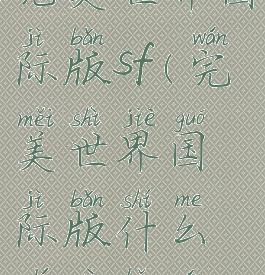 jì bǎn wán
际版sf(完
měi shì jiè guó
美世界国
jì bǎn shí me
际版什么